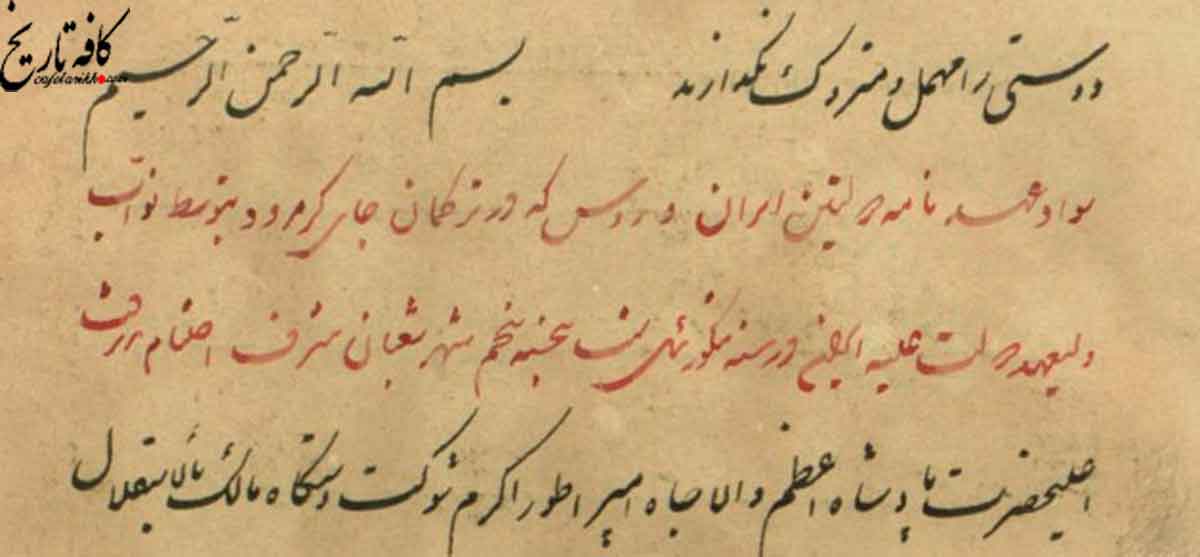 کافه تاریخ
cafetarikh.com
دوستی را مهمل و متروک نگذارند بسم الله الرحمن الرحیم
سواد عهدنامه دولتین ایران و روس که در ترکمان جای گرمرود بتوسط نواب
ولیعهد دولت علیه در سنه تنگوزئیل شب پنجشنبه پنجم شهر شعبان شرف اختتام پذیرفت
اعلیحضرت پادشاه اعظم والاجاه امپراطور اکرم شوکت دستگاه مالک بالاستقلال